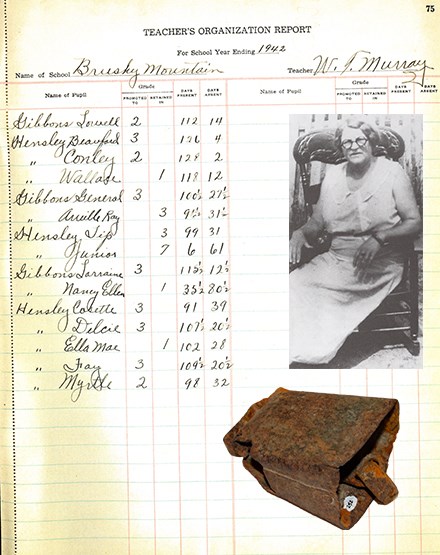 75
TEACHER'S ORGANIZATION REPORT
For School Year Ending 1942
Name of School Brusky Mountain Teacher W. T. Murray
Name of Pupil Grade PROMOTED TO RETAINED IN DAYS PRESENT DAYS ABSENT Name of Pupil Grade PROMOTED TO RETAINED IN DAYS PRESENT DAYS ABSENT
Gibbons Lowell 2 112 14
Hensley Beauford 3 126 4
" Conley 2 128 2
" Wallace 1 118 12
Gibbons General 3 100½ 27½
" Arville Ray 3 9½ 31½
Hensley Sip 3 99 31
" Junior 7 6 61
Gibbons Lorraine 3 115½ 12½
" Nancy Ellen 1 35½ 80½
Hensley Colette 3 91 39
" Delcie 3 107½ 20½
" Ella Mae 1 102 28
" Fay 3 109½ 20½
" Myrtle 2 98 32